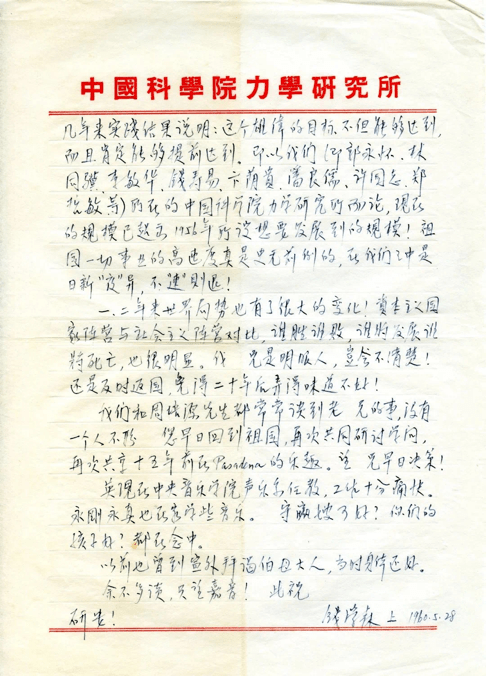 中國科學院力學研究所
几年来实践结果说明：这个雄伟的目标不但能够达到，
而且肯定能够提前达到。即以我们（即郭永怀、林
同骥、李敏华、钱寿易、卞荫贵、潘良儒、许国志、郑
哲敏等）所在的中国科学院力学研究所而论，现在
的规模已超出1956年所设想要发展到的规模！祖
国一切事业的高速度真是史无前例的，在我们这中是
日新“夜”异，不“速”则退！
一、二年来世界局势也有了很大的变化！资本主义国
家阵营与社会主义阵营对比，谁胜谁败，谁将发展谁
将死亡，也很明显。我 兄是明眼人，岂会不清楚！
还是及时返国，免得二十年后弄得味道不好！
我们和周培源先生都常常谈到老 兄的事，没有
一个人不盼 您早日回到祖国，再次共同研讨学问，
再次共享十五年前在Pasadena的乐趣。望 兄早日决策！
英现在中央音乐学院声乐系任教，工作十分痛快。
永刚永真也在学些音乐。 守瀛嫂子好？你们的
孩子好？都在念中。
以前也曾到宣外拜谒伯母大人，当时身体还好。
余不多谈，只望嘉音！ 此祝
研安！ 钱学森 上 1960.5.28